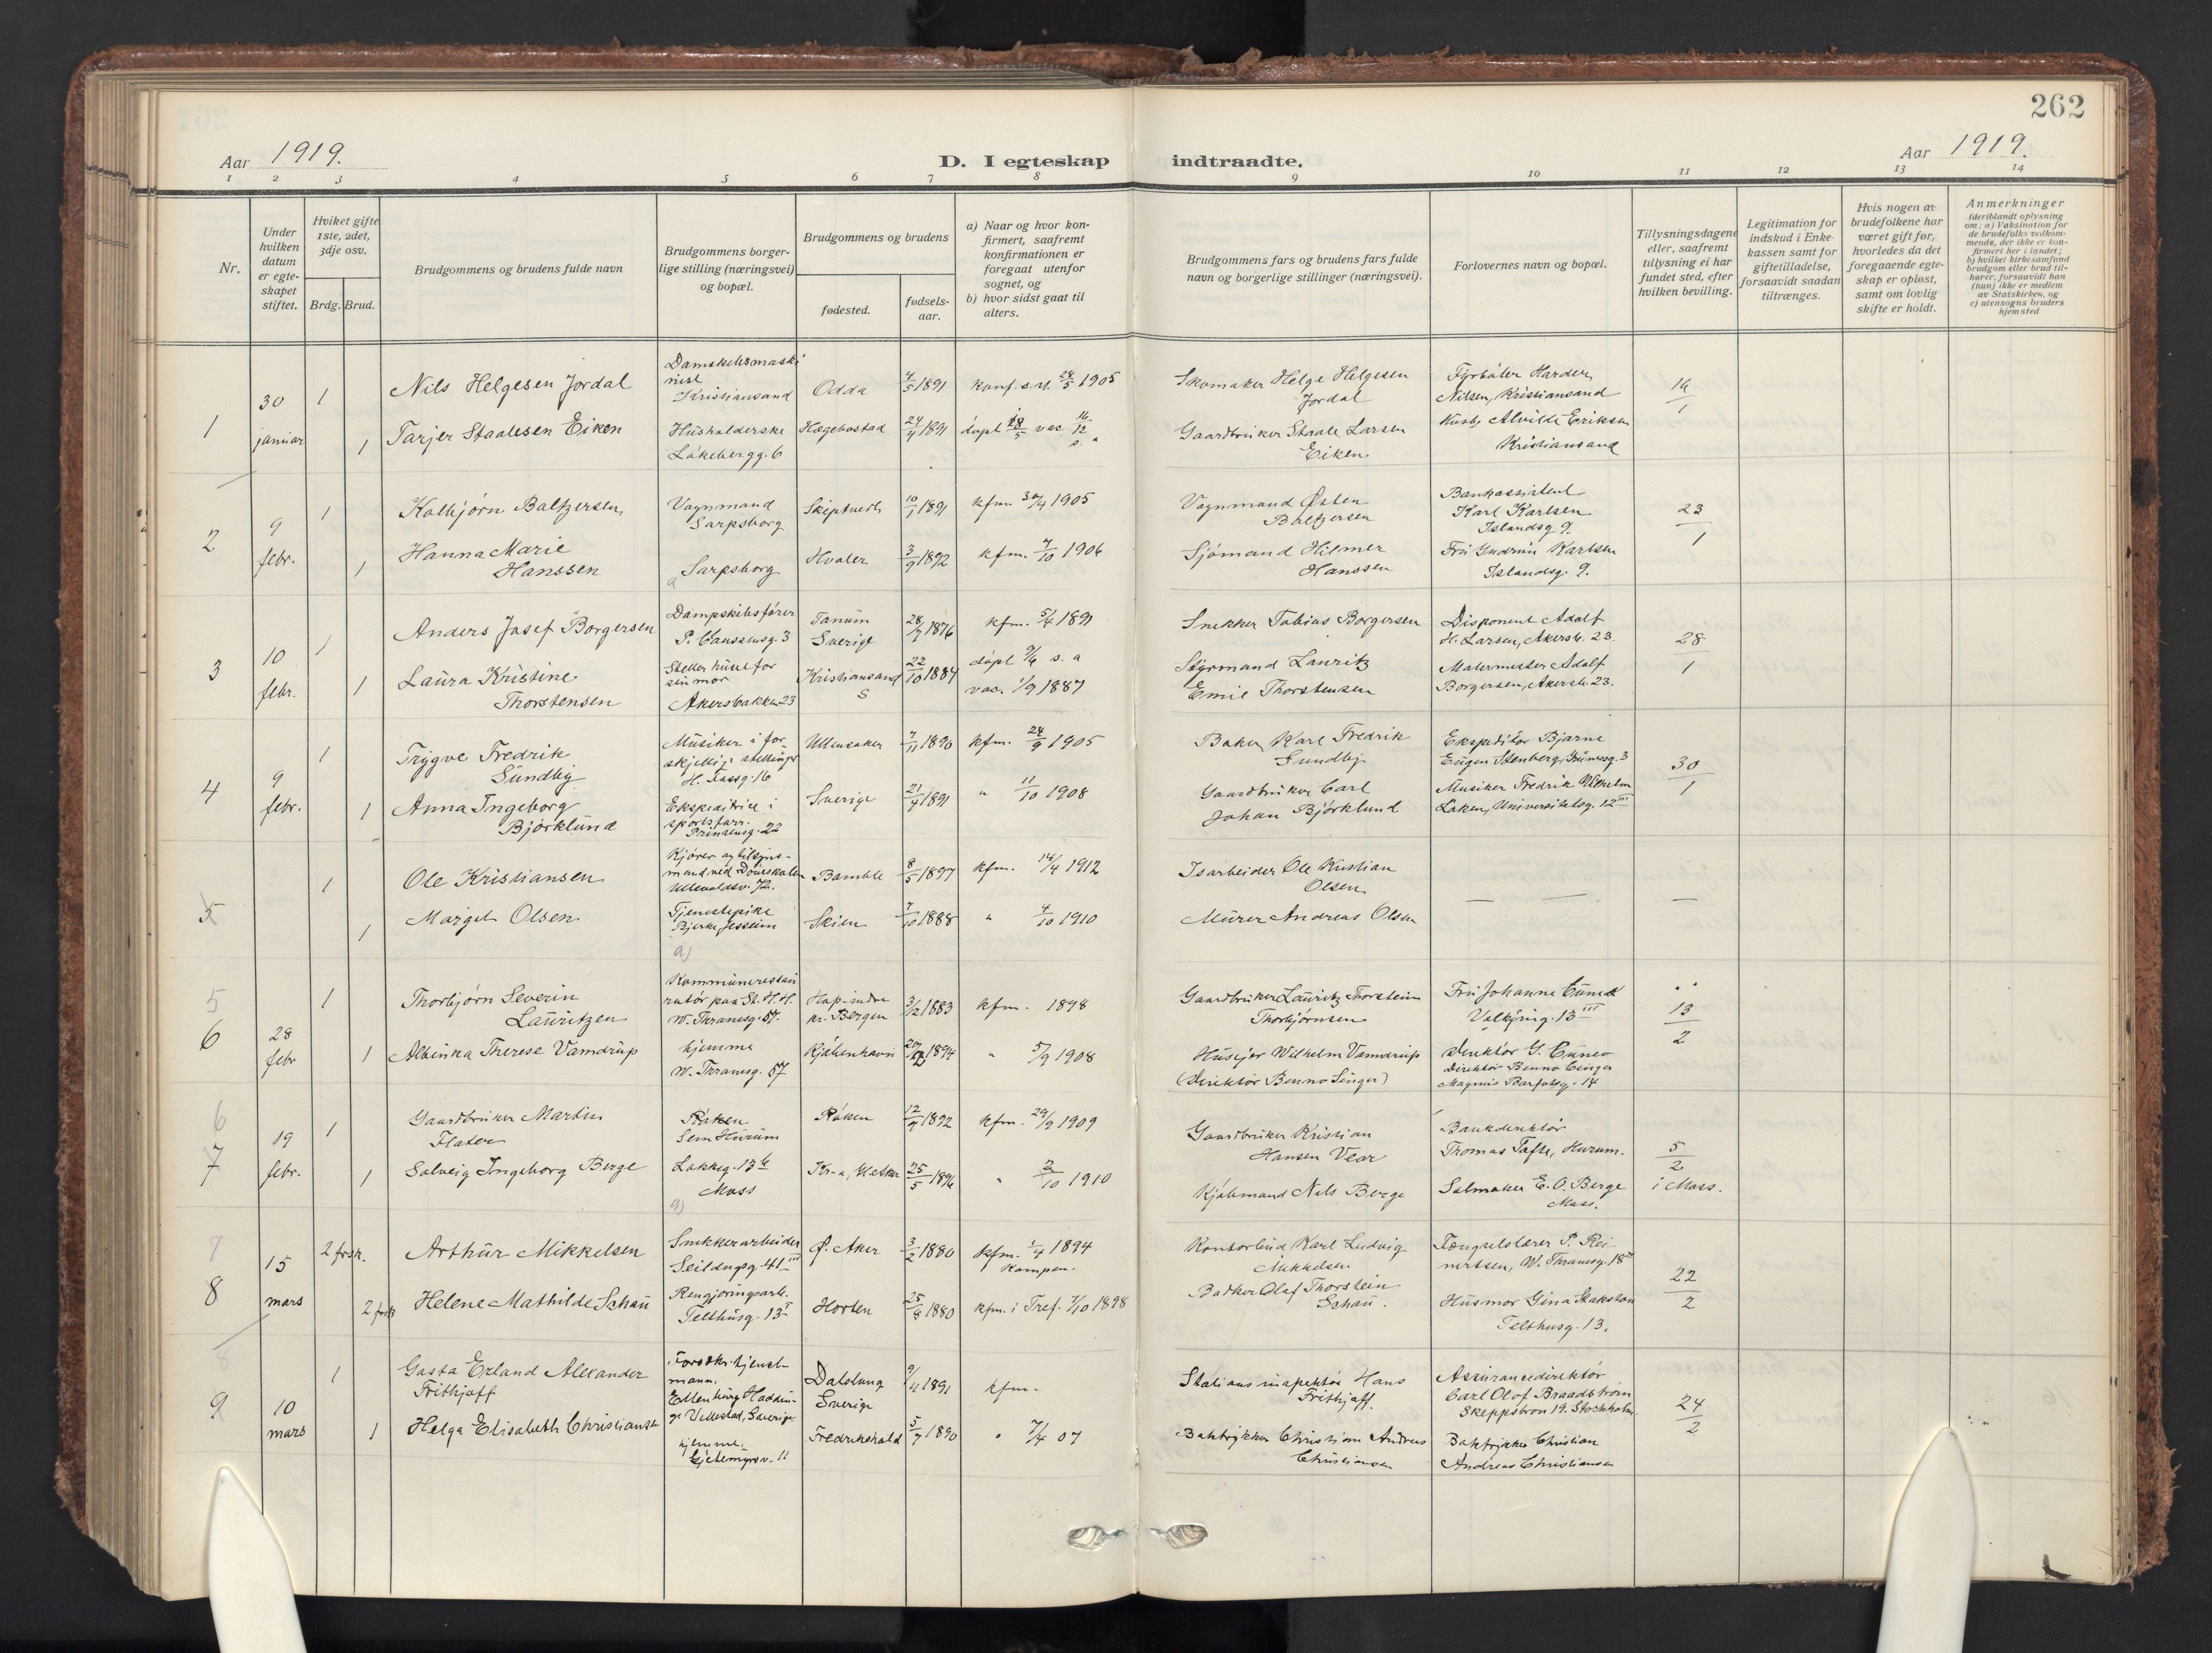 262
Aar 1919.
D. I egteskap indtraadte.
Aar 1919.
1 2 3 4 5 6 7 8 9 10 11 12 13 14
Nr.
Under
hvilken
datum
er egte-
skapet
stiftet.
Hviket gifte
1ste, 2det,
3dje osv.
Brdg. Brud.
Brudgommens og brudens fulde navn
Brudgommens borger-
lige stilling (næringsvei)
og bopæl.
Brudgommens og brudens
fødested.
fødsels-
aar.
a) Naar og hvor kon-
firmert, saafremt
konfirmationen er
foregaat utenfor
sognet, og
b) hvor sidst gaat til
alters.
Brudgommens fars og brudens fars fulde
navn og borgerlige stillinger (næringsvei).
Forlovernes navn og bopæl.
Tillysningsdagene
eller, saafremt
tillysning ei har
fundet sted, efter
hvilken bevilling.
Legitimation for
indskud i Enke-
kassen samt for
giftetilladelse,
forsaavidt saadan
tiltrænges.
Hvis nogen av
brudefolkene har
været gift før,
hvorledes da det
foregaaende egte-
skap er opløst,
samt om lovlig
skifte er holdt.
Anmerkninger
(deriblandt oplysning
om: a) Vaksination for
de brudefolks vedkom-
mende, der ikke er kon-
firmert her i landet;
b) hvilket kirkesamfund
brudgom eller brud til-
hører, forsaavidt han
(hun) ikke er medlem
av Statskirken, og
c) utensogns bruders
hjemsted
1
30
januar
1
Nils Helgesen Jordal
Kristiansand
Odda
4/5 1891
konf. s. st. 28/5 1905
Skomaker Helge Helgesen
Jordal
Fyrbøter
Nilsen, Kristiansand
16/1
1
Tarjer Staalesen Eiken
Husholderske
Lakkebergg. 6
Hægebostad
24/4 1891
døpt 18/5 vac 16/12
s. a
Gaardbruker Staale Larsen
Eiken
Alvilde Eriksen
Kristiansand
2
9
febr.
1
Kolbjørn Baltzersen
Vognmand
Sarpsborg
Skiptvedt
10/1 1891
kfm. 30/4 1905
Vognmand Østen
Baltzersen
Bankassistent
Karl Karlsen
Islandsg 9.
23/1
1
Hanna Marie
Hanssen
Sarpsborg
Hvaler
3/9 1892
kfm. 7/10 1906
Sjømand Hilmer
Hanssen
Fru Gudrun Karlsen
Islandsg. 9.
3
10
febr.
1
Anders Josef Borgersen
Dampskibsfører
P. Claussensg. 3
Tanum
Sverige
28/7 1876
kfm. 5/4 1891
Snekker Tobias Borgersen
Disponent Adolf
H. Larsen, Akersb. 23.
28/1
1
Laura Kristine
Thorstensen
Steller huset for
sin mor
Akersbakken 23
Kristiansand
S
22/10 1884
døpt 9/6 s. a
vac. 1/9 1887
Styrmand Lauritz
Emil Thorstensen
Malermester Adolf
Borgersen, Akersb. 23.
4
9
febr.
1
Trygve Fredrik
Sundby
Musiker i for-
skjellige stillinger
Ullensaker
7/11 1890
kfm. 24/9 1905
Baker Karl Fredrik
Sundby
Ekspeditør Bjarne
Eugen Stenberg, Grünersg. 3
30/1
1
Anna Ingeborg
Bjørklund
Ekspeditrice i
sportsforr.
Prinsensg. 22
Sverige
21/4 1891
" 11/10 1908
Gaardbruker Carl
Johan Bjørklund
Musiker Fredrik Vilhelm
Laken, Universitetsg. 12 III
5
1
Ole Kristiansen
Ullevoldsv. 72.
Bamble
8/5 1897
kfm. 14/4 1912
Isarbeider Ole Kristian
Olsen
1
Margit Olsen
Tjenestepike
Bjerke, Jessheim
a)
Skien
7/10 1888
" 4/10 1910
Murer Andreas Olsen
— — —
5
6
28
febr
1
Thorbjørn Severin
Lauritzen
W. Thranesg. 57.
Hop-indre
nr. Bergen
3/12 1883
kfm. 1898
Gaardbruker Lauritz Thorstein
Thorbjørnsen
Fru Johanne Cuneo
Valkyrieg. 13 III
13/2
1
Albinka Therese Vamdrup
hjemme
W. Thranesg. 57
Kjøbenhavn
1894
" 5/9 1908
Husejer Wilhelm Vamdrup
(Direktør Benno Singer)
Direktør G. Cuneo
Direktør Benno Singer
Magnus Barfotsg. 14
6
7
19
febr.
1
Gaardbruker Martin
Flaten
Røken
Røken
1892
kfm. 29/9 1909
Gaardbruker Kristian
Hansen Vear
Bankdirektør
Thomas Tofte, Hurum.
5/2
i Moss.
1
Solveig Ingeborg Berge
Moss
a)
25/5 1896
" 2/10 1910
Kjøbmand Nils Berge
Salmaker E. O. Berge
Moss.
7
8
15
mars
2 frsk.
Arthur Mikkelsen
Snekkerarbeider
Seildugsg. 41 III
Ø. Aker
3/2 1880
kfm. 1/4 1894
Kampen.
Kontorbud Karl Ludvig
Mikkelsen
Fængselslærer P. Rei-
nertsen, W. Thranesg. 18
22/2
2 frsk
Helene Mathilde Schau
Rengjøringsarb.
Telthusg. 13 I
Horten
25/8 1880
kfm. i Tref. 7/10 1898
Bødker Olaf Thorstein
Schau.
Husmor Gina
Telthusg. 13.
8
9
10
mars
1
Gösta Erland Alexander
Frithjoff
Sverige
Sverige
9/11 1891
kfm.
Stationsinspektør Hans
Frithjoff.
Assurancedirektør
Carl Olof Braadstrøm
Skeppsbron 19. Stockholm
24/2
1
Helga Elisabeth Christiansen
hjemme
Gjetemyrsv. 11
Fredrikshald
5/7 1890
" 7/4 07
Boktrykker Christian Andreas
Christiansen
Boktrykker Christian
Andreas Christiansen